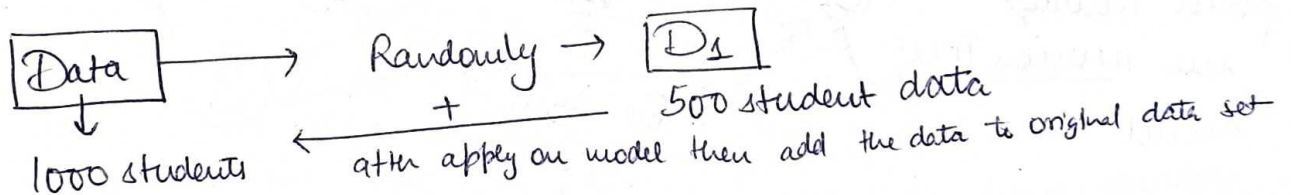 Data → Randomly → D1
+ 500 student data
1000 students ← after apply on model then add the data to original data set